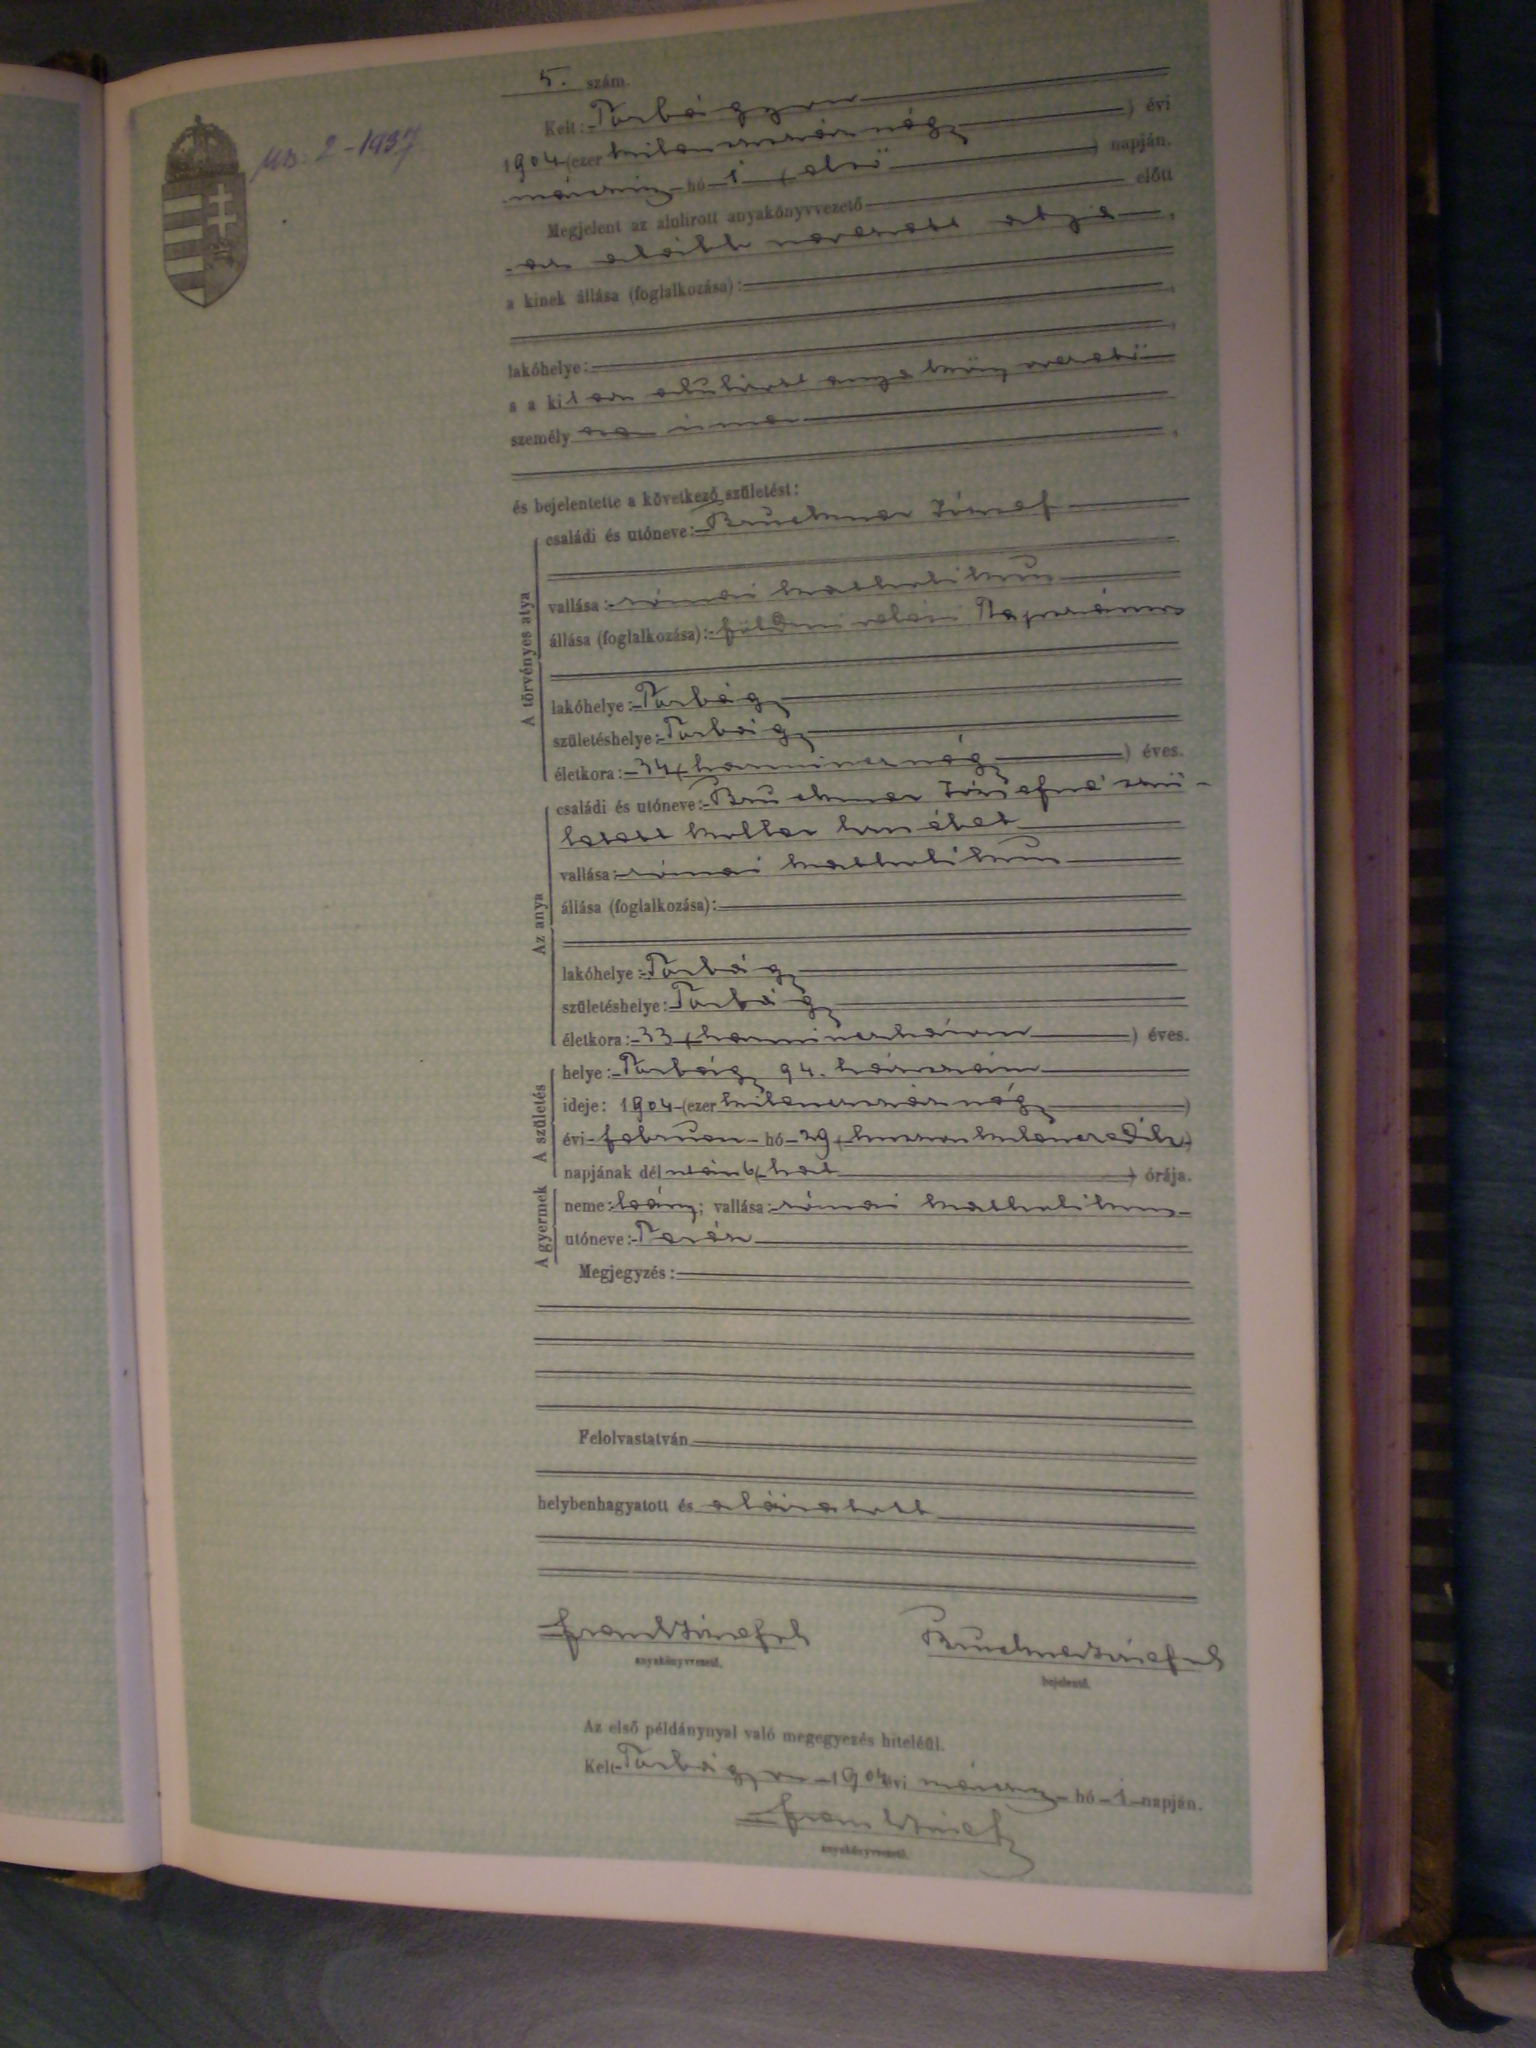 5. szám.
Kelt: Torbágyon
1904 (ezer kilencszáz négy ) évi
március hó 1 ( első ) napján.
Megjelent az alulirott anyakönyvvezető előtt
az alább nevezett atya,
a kinek állása (foglalkozása):
lakóhelye:
s a kit az alulirott anyakönyvvezető
személyesen ismer
és bejelentette a következő születést:
A törvényes atya
családi és utóneve: Bruckner József
vallása: római katholikus
állása (foglalkozása): földmivelési napszámos
lakóhelye: Torbágy
születéshelye: Torbágy
életkora: 34 ( harmincnégy ) éves.
Az anya
családi és utóneve: Bruckner Józsefné szü-
letett Koller
vallása: római katholikus
állása (foglalkozása):
lakóhelye: Torbágy
születéshelye: Torbágy
életkora: 33 ( harminchárom ) éves.
A születés
helye: Torbágy 94. házszám
ideje: 1904 (ezer kilencszáz négy )
évi február hó 29 ( huszonkilencedik )
napjának dél után 6 ( hat ) órája.
A gyermek
neme: leány; vallása: római katholikus
utóneve: Teréz
Megjegyzés:
Felolvastatván
helybenhagyatott és aláiratott
anyakönyvvezető.
Bruckner József
bejelentő.
Az első példánynyal való megegyezés hiteléül.
Kelt Torbágyon 1904 évi március hó 1 napján.
anyakönyvvezető.
2-1937.